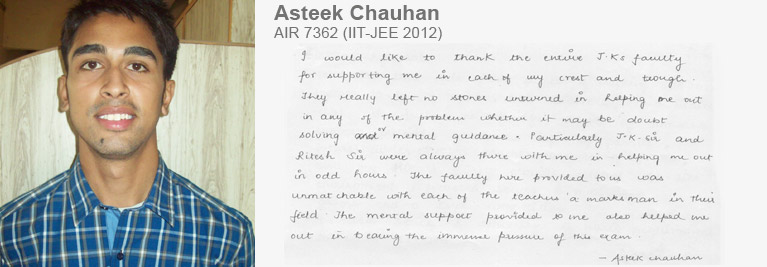 Asteek Chauhan
AIR 7362 (IIT-JEE 2012)
I would like to thank the entire J.Ks faculty
for supporting me in each of my crest and trough.
They really left no stones unturned in helping me out
in any of the problem whether it may be doubt
solving and or mental guidance. Particularly J.K. Sir and
Ritesh Sir were always there with me in helping me out
in odd hours. The faculty here provided to us was
unmatchable with each of the teachers a marksman in their
field. The mental support provided to me also helped me
out in bearing the immense pressure of this exam.
- Asteek Chauhan